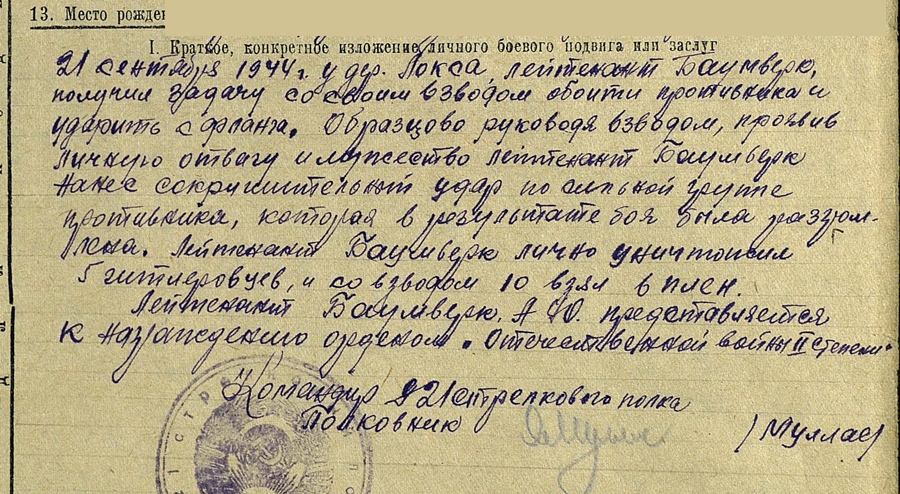 13. Место рожден
I. Краткое, конкретное изложение личного боевого подвига или заслуг
21 сентября 1944 г. у дер. Локса, лейтенант Баумверк,
получил задачу со своим взводом обойти противника и
ударить с фланга. Образцово руководя взводом, проявив
личную отвагу и мужество лейтенант Баумверк
нанес сокрушительный удар по сильной группе
противника, которая в результате боя была разгром-
лена. Лейтенант Баумверк лично уничтожил
5 гитлеровцев, и со взводом 10 взял в плен.
Лейтенант Баумверк. А Ю. представляется
к награждению орденом „Отечественной войны II степени“
Командир 921 стрелкового полка
Полковник /Муллас/